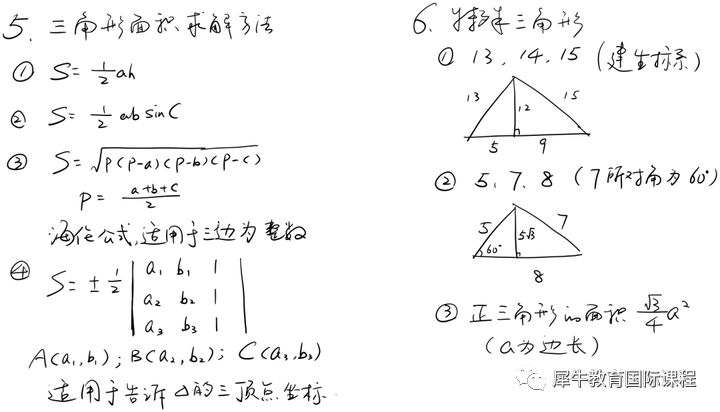 5. 三角形面积求解方法
① S = 1/2 ah
② S = 1/2 ab sinC
③ S = √P(P-a)(P-b)(P-c)
P = a+b+c/2
海伦公式,适用于三边为整数
④ S = ± 1/2 | a₁ b₁ 1 |
| a₂ b₂ 1 |
| a₃ b₃ 1 |
A(a₁,b₁); B(a₂,b₂); C(a₃,b₃)
适用于告诉△的三顶点坐标.
6. 特殊三角形
① 13、14、15 (建坐标系)
13 12 15
5 9
② 5、7、8 (7所对角为60°)
5 5√3 7
60°
8
③ 正三角形的面积 √3/4 a²
(a为边长)
犀牛教育国际课程